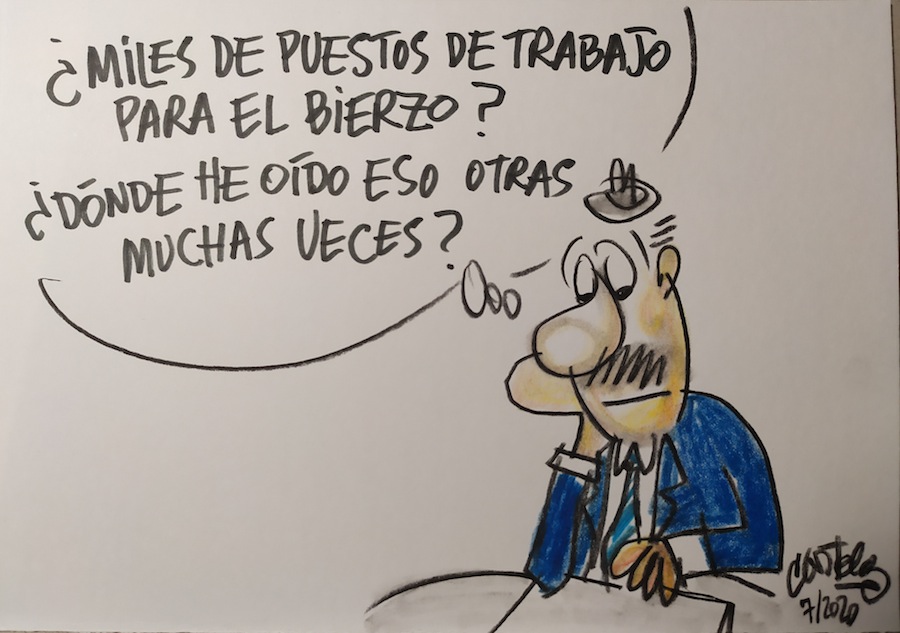 ¿MILES DE PUESTOS DE TRABAJO
PARA EL BIERZO?
¿DÓNDE HE OÍDO ESO OTRAS
MUCHAS VECES?
7/2020